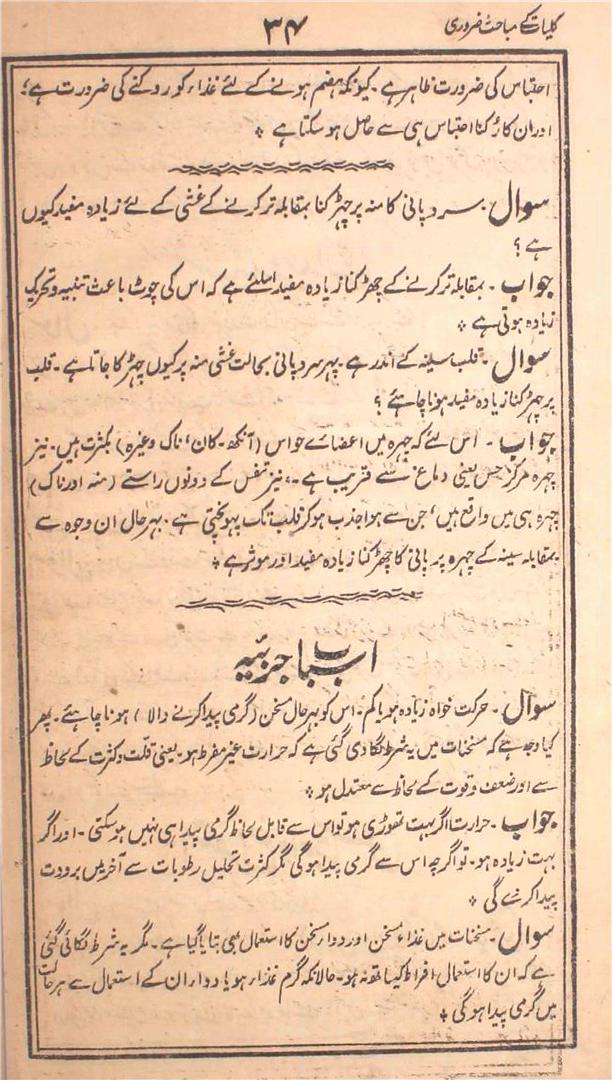 کلیات کے مباحث ضروری
۳۴
احتباس کی ضرورت ظاہر ہے۔ کیونکہ ہضم ہونے کے لئے غذاء کو روکنے کی ضرورت ہے؛
اور ان کا رُکنا احتباس ہی سے حاصل ہو سکتا ہے ٭
سوال۔ سرد پانی کا منہ پر چھڑکنا بمقابلہ تر کرنے کے غشی کے لئے زیادہ مفید کیوں
ہے؟
جواب۔ بمقابلہ تر کرنے کے چھڑکنا زیادہ مفید اسلئے ہے کہ اس کی چوٹ باعث تنبیہ و تحریک
زیادہ ہوتی ہے ٭
سوال۔ قلب سینہ کے اندر ہے۔ پھر سرد پانی بحالت غشی منہ پر کیوں چھڑکا جاتا ہے۔ قلب
پر چھڑکنا زیادہ مفید ہونا چاہئے؟
جواب۔ اس لئے کہ چہرہ میں اعضائے حواس (آنکھ۔ کان، ناک وغیرہ) بکثرت ہیں۔ نیز
چہرہ مرکز حس یعنی دماغ سے قریب ہے۔، نیز تنفس کے دونوں راستے (منہ اور ناک)
چہرہ ہی میں واقع ہیں، جن سے ہوا جذب ہو کر قلب تک پہونچتی ہے۔ بہرحال ان وجوہ سے
بمقابلہ سینہ کے چہرہ پر پانی کا چھڑکنا زیادہ مفید اور موثر ہے ٭
اسباب جزئیہ
سوال۔ حرکت خواہ زیادہ ہو یا کم۔ اس کو بہرحال مسخن (گرمی پیدا کرنے والا) ہونا چاہئے۔ پھر
کیا وجہ ہے کہ مسخنات میں یہ شرط لگا دی گئی ہے کہ حرارت غیر مفرط ہو۔ یعنی قلت و کثرت کے لحاظ
سے اور ضعف و قوت کے لحاظ سے معتدل ہو ٭
جواب۔ حرارت اگر بہت تھوڑی ہو تو اس سے قابل لحاظ گرمی پیدا ہی نہیں ہو سکتی۔ اور اگر
بہت زیادہ ہو۔ تو اگرچہ اس سے گرمی پیدا ہوگی مگر کثرت تحلیل رطوبات سے آخر میں برودت
پیدا کرے گی ٭
سوال۔ مسخنات میں غذاء مسخن اور دواء مسخن کا استعمال بھی بتایا گیا ہے۔ مگر یہ شرط لگائی گئی
ہے کہ ان کا استعمال افراط کیساتھ نہ ہو۔ حالانکہ گرم غذاء ہو یا دوا ان کے استعمال سے ہر حالت
میں گرمی پیدا ہوگی ٭